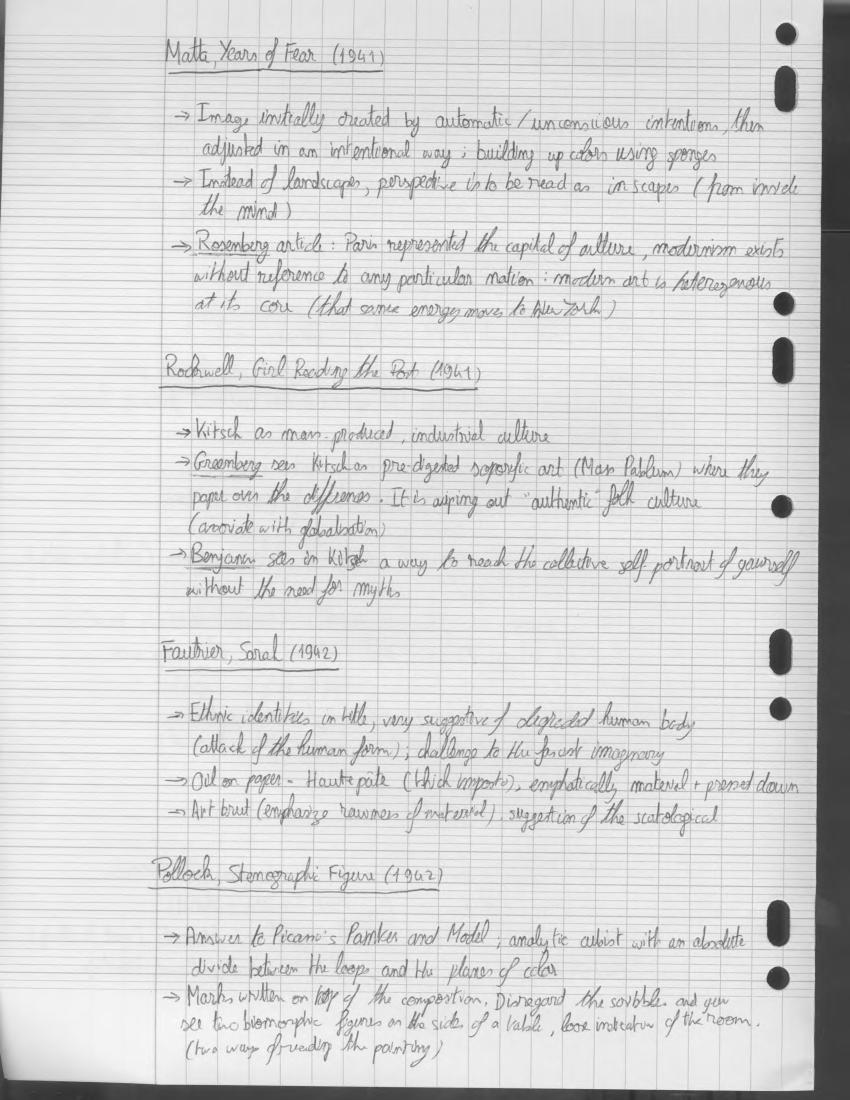 Matta, Years of Fear (1941)
→ Image initially created by automatic / unconscious intentions, then
adjusted in an intentional way ; building up colors using sponges
→ Instead of landscapes, perspective is to be read as inscapes (from inside
the mind)
→ Rosenberg article : Paris represented the capital of culture, modernism exists
without reference to any particular nation : modern art is heterogenous
at its core (that same energy moves to New York)
Rockwell, Girl Reading the Post (1941)
→ Kitsch as mass-produced, industrial culture
→ Greenberg sees Kitsch as pre-digested soporific art (Mass Pablum) where they
paper over the differences. It is wiping out "authentic" folk culture
(associate with globalisation)
→ Benjamin sees in Kitsch a way to reach the collective self portrait of yourself
without the need for myths
Fautrier, Sarah (1942)
→ Ethnic identities in title, very suggestive of degraded human body
(attack of the human form) ; challenge to the fascist imaginary
→ Oil on paper - Haute pâte (thick impasto), emphatically material + pressed down
→ Art brut (emphasize rawness of material), suggestion of the scatological
Pollock, Stenographic Figure (1942)
→ Answer to Picasso's Painter and Model ; analytic cubist with an absolute
divide between the loops and the planes of color
→ Marks written on top of the composition. Disregard the scribbles and you
see two biomorphic figures on the sides of a table, loose indicator of the room.
(two ways of reading the painting)